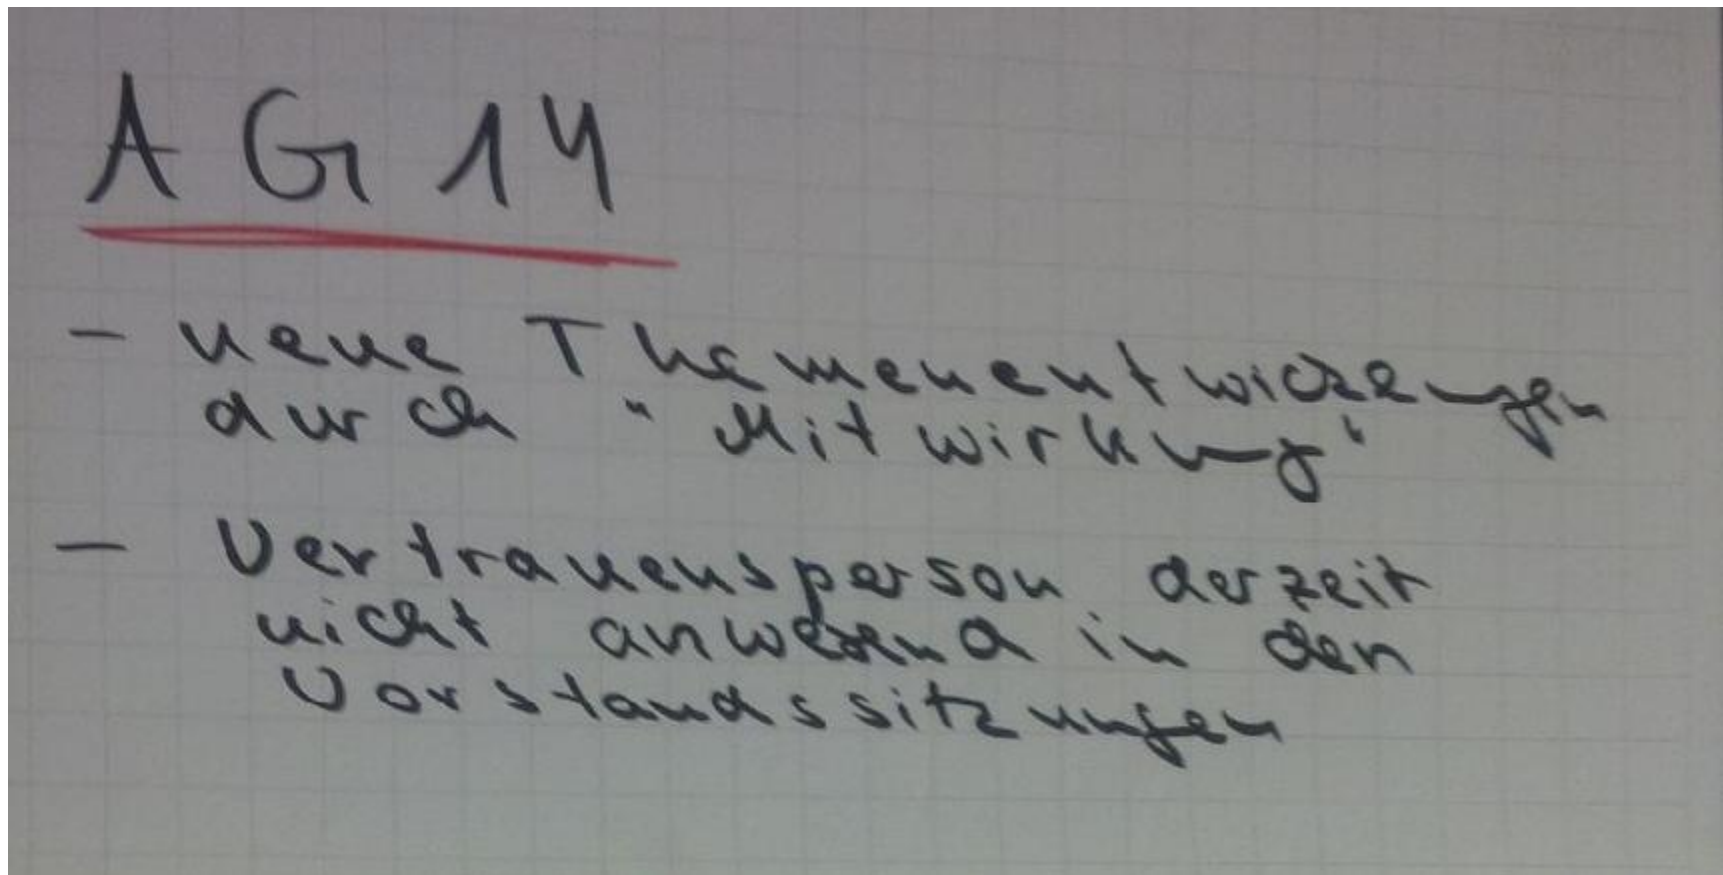 AG 14
- neue Themenentwicklungen
durch "Mitwirkung"
- Vertrauensperson derzeit
nicht anwesend in den
Vorstandssitzungen